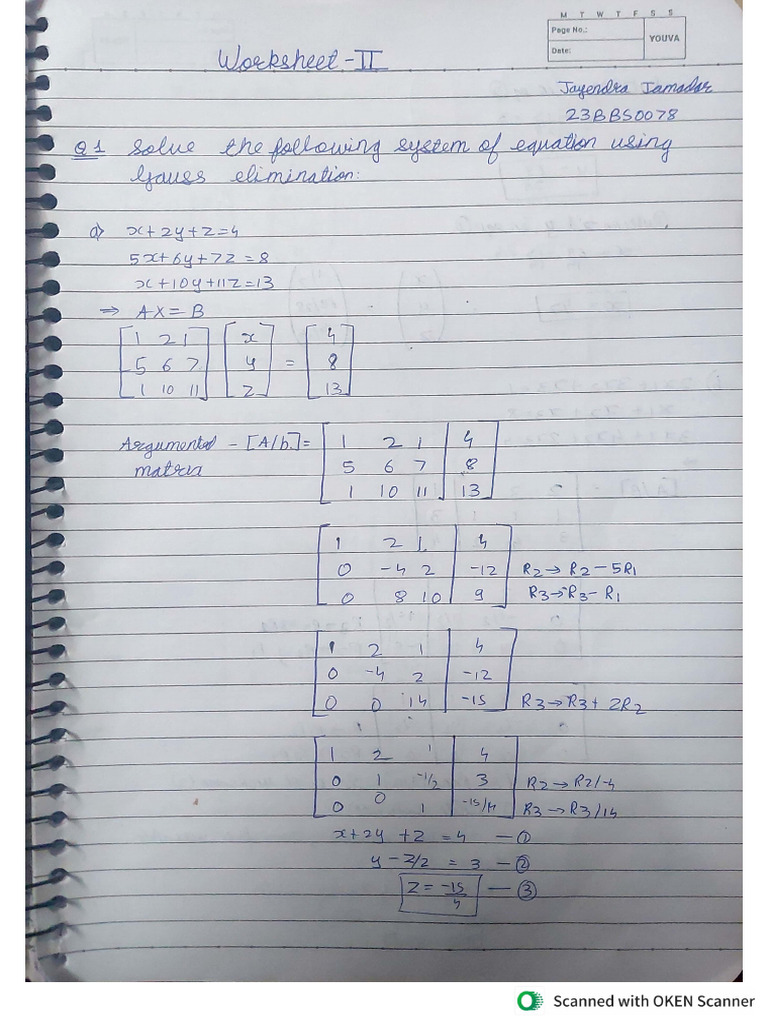 M T W T F S S
Page No.:
Date:
YOUVA
Worksheet-II
Jayendra Jamadar
23BBS0078
Q1 Solve the following system of equation using
Gauss elimination:
a) x+2y+z=4
5x+6y+7z=8
x+10y+11z=13
⇒ AX=B
[1 2 1] [x] [4]
[5 6 7] [y] = [8]
[1 10 11] [z] [13]
Argumented - [A/b]= [1 2 1 | 4]
matrix [5 6 7 | 8]
[1 10 11 | 13]
[1 2 1 | 4]
[0 -4 2 | -12] R2→R2-5R1
[0 8 10 | 9] R3→R3-R1
[1 2 1 | 4]
[0 -4 2 | -12]
[0 0 14 | -15] R3→R3+2R2
[1 2 1 | 4]
[0 1 -1/2 | 3] R2→R2/-4
[0 0 1 | -15/14] R3→R3/14
x+2y+z=4 —①
y-z/2=3 —②
z=-15/4 —③
Scanned with OKEN Scanner